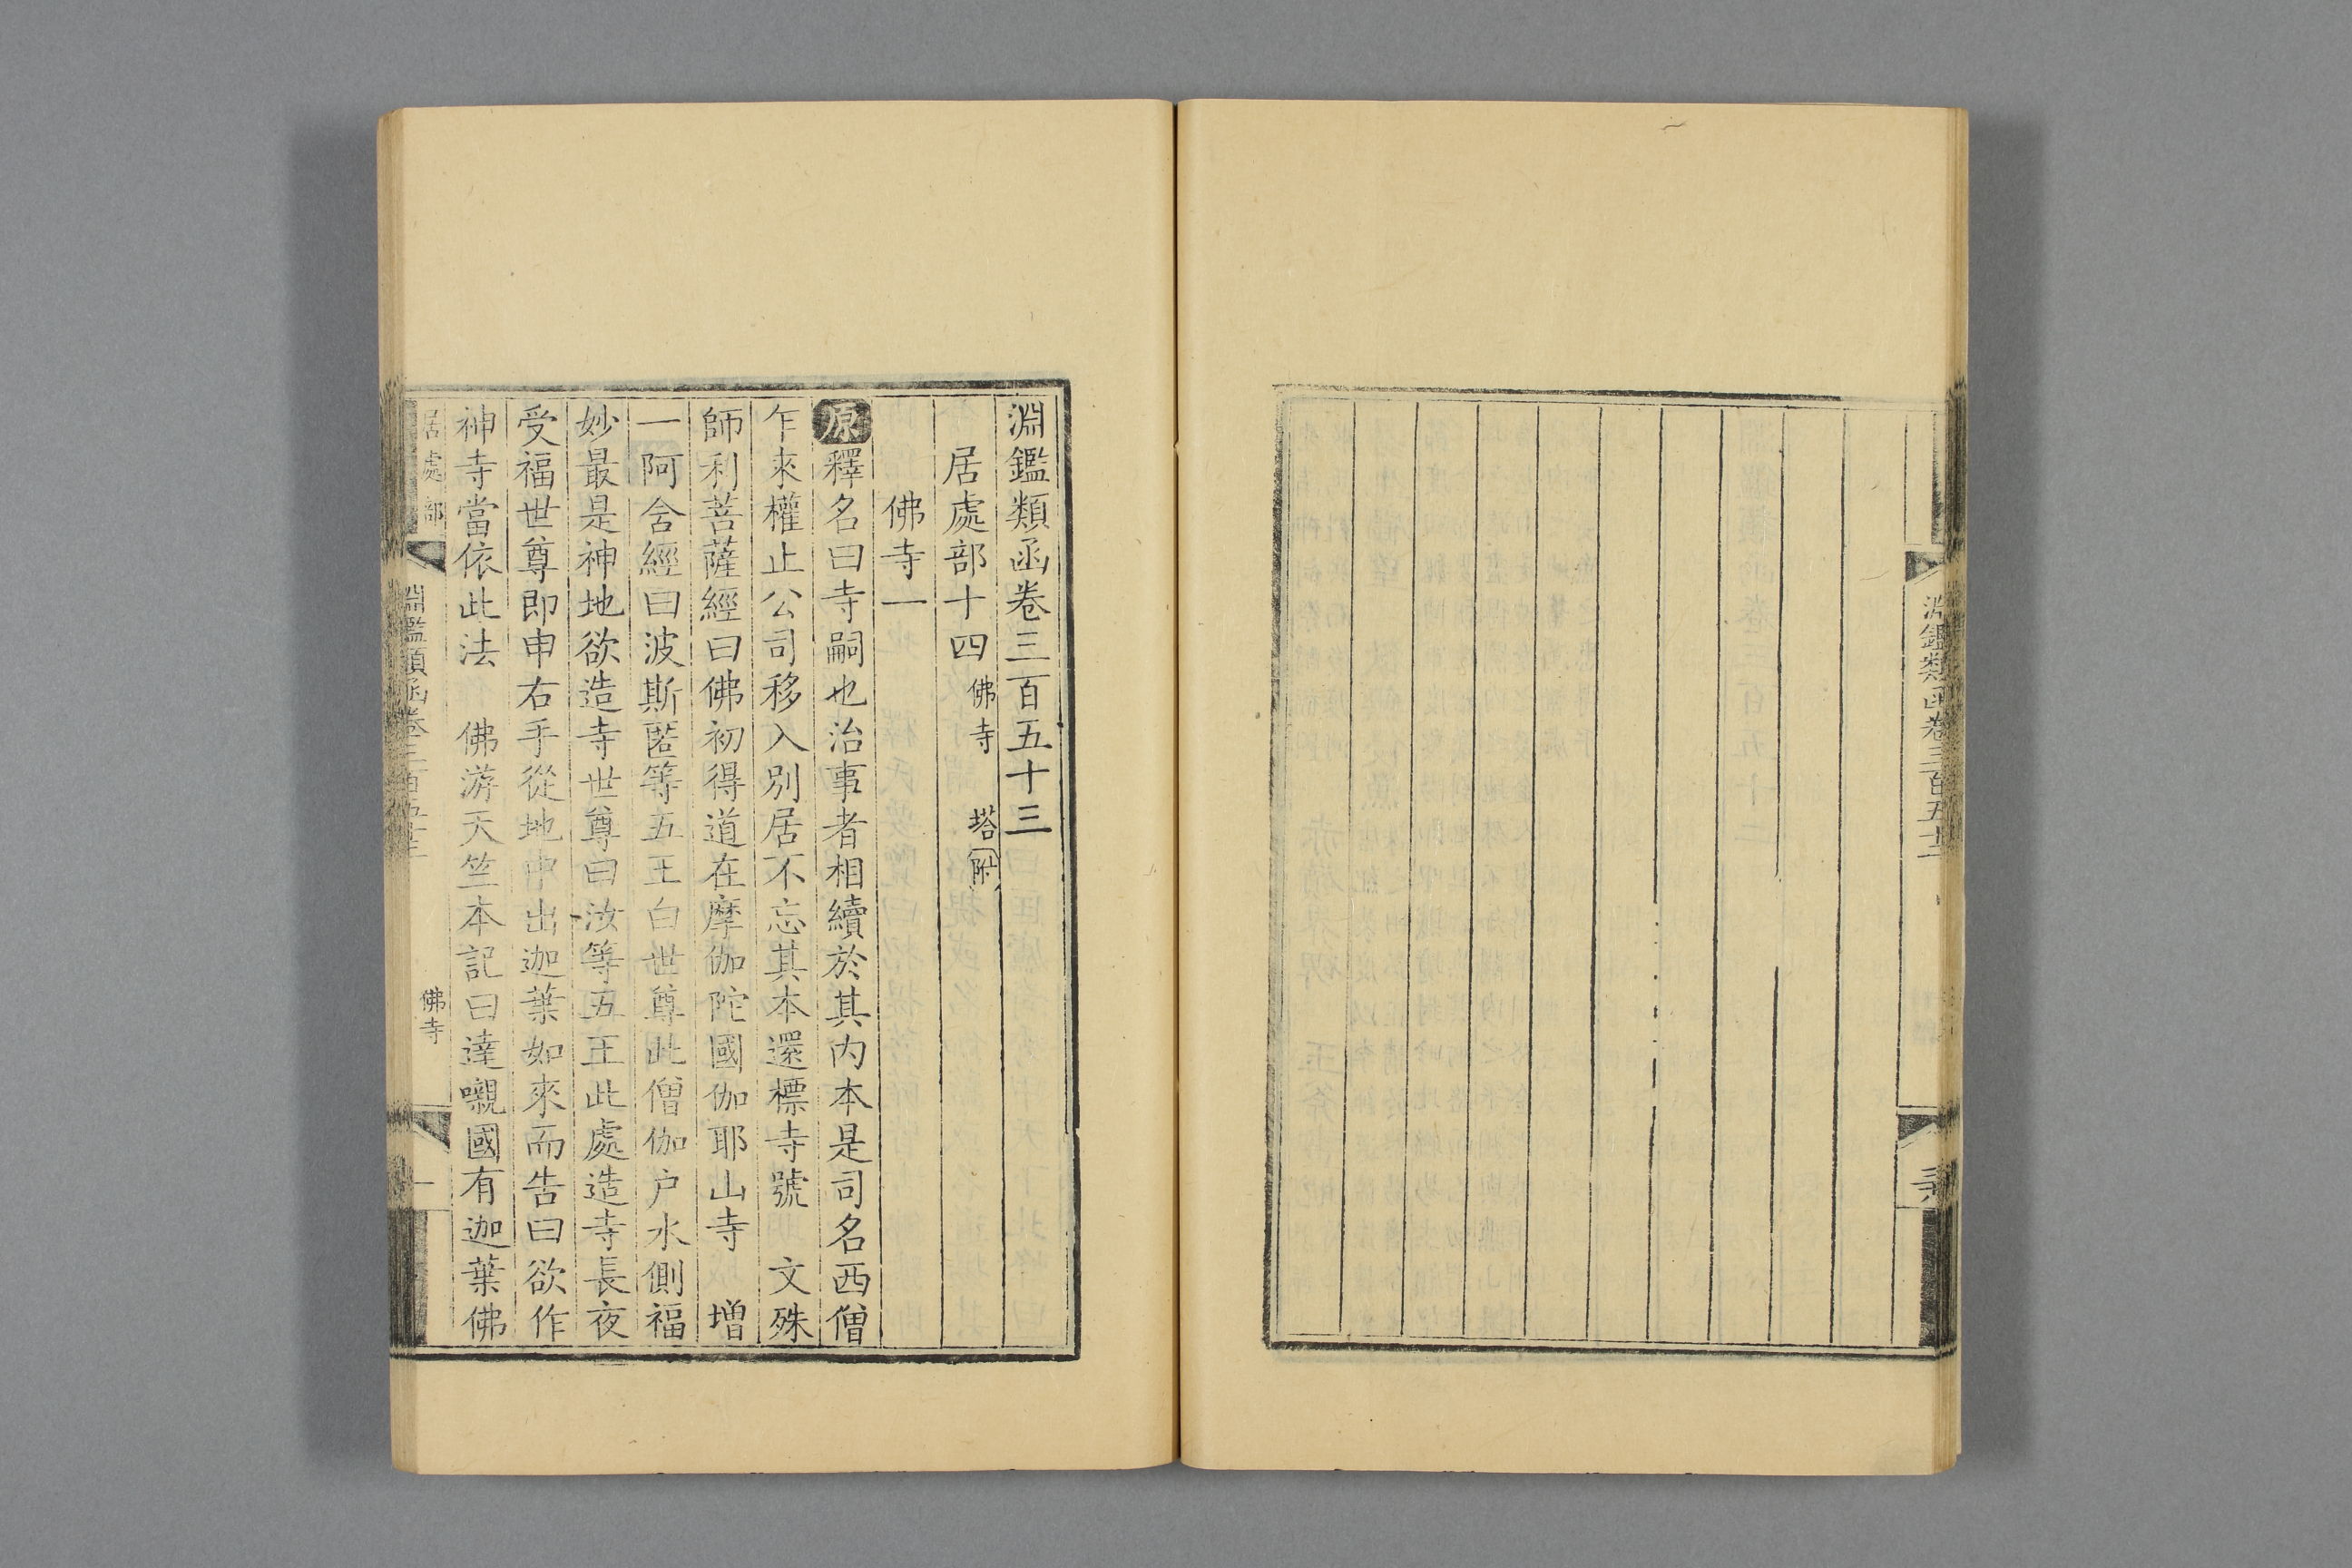 淵鑑類函卷三百五十二
淵鑑類函卷三百五十三
居處部十四 佛寺 塔附
佛寺一
原釋名曰寺嗣也治事者相續於其内本是司名西僧
乍來權止公司移入別居不忘其本還標寺號 文殊
師利菩薩經曰佛初得道在摩伽陀國伽耶山寺 增
一阿含經曰波斯匿等五王白世尊此僧伽户水側福
妙最是神地欲造寺世尊曰汝等五王此處造寺長夜
受福世尊即申右手從地中出迦葉如來而告曰欲作
神寺當依此法 佛游天竺本記曰達嚫國有迦葉佛
居處部 淵鑑類函卷三百五十三 佛寺 一